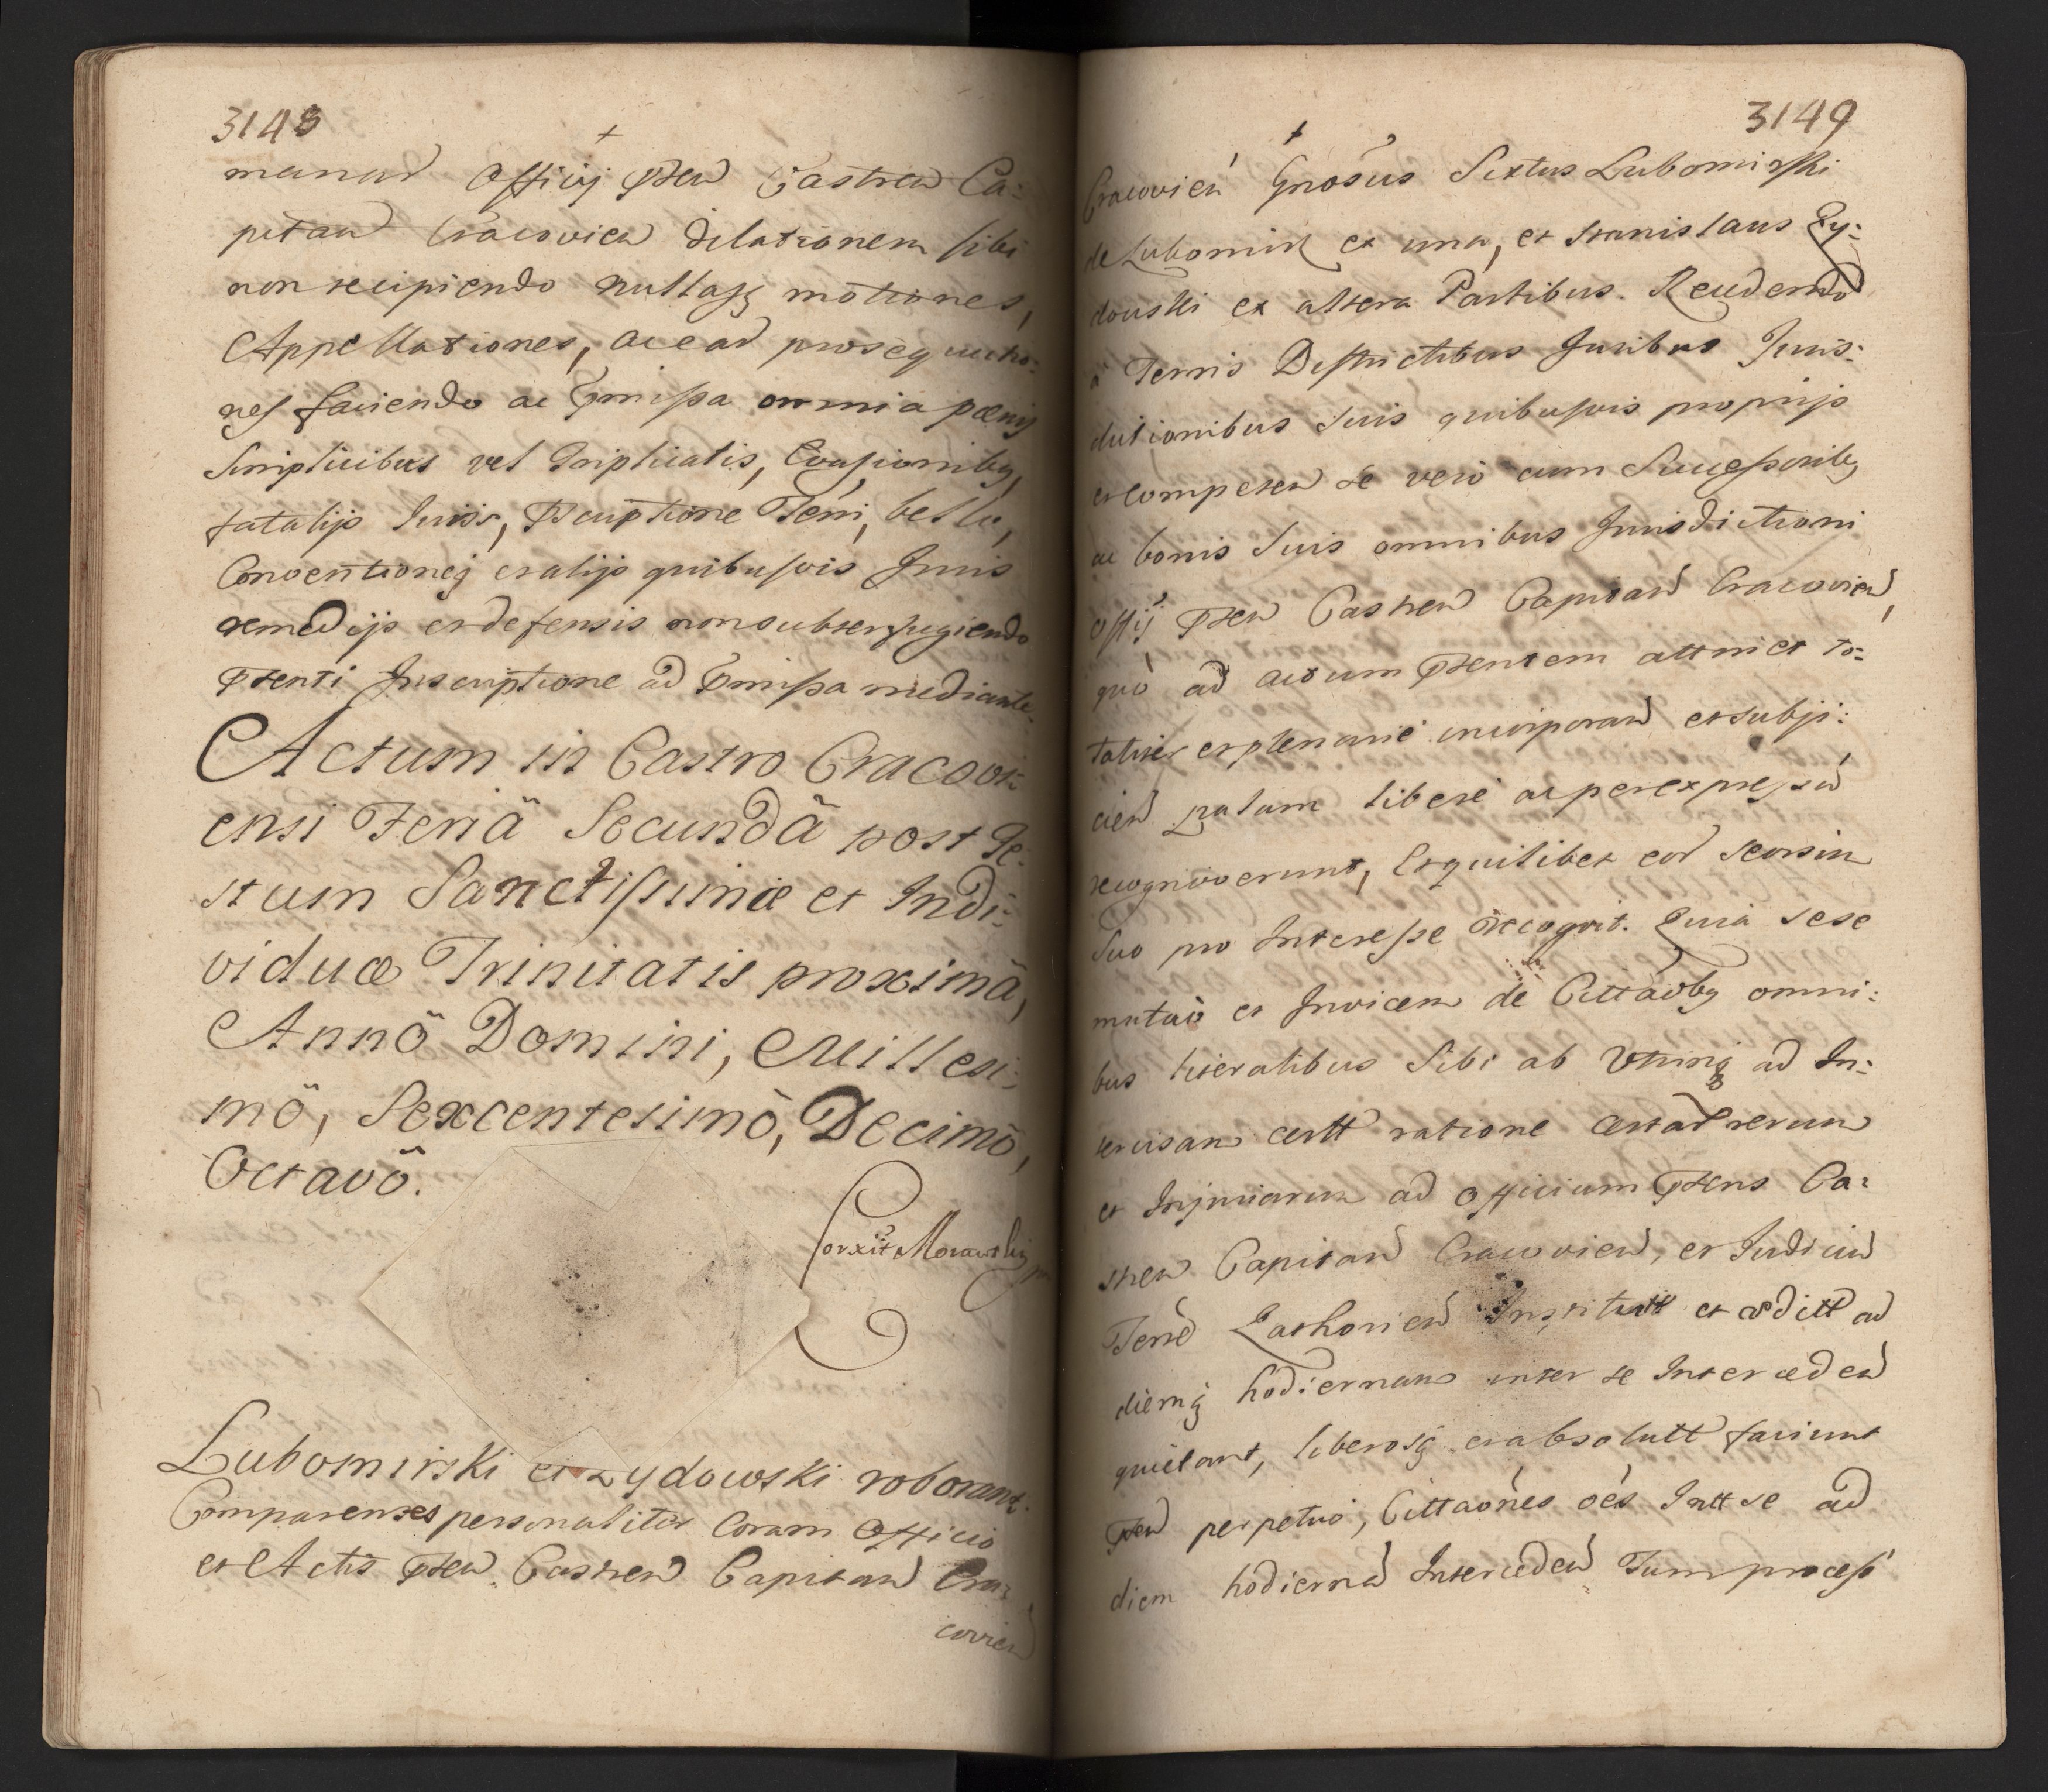 3148
manud Officij pten Castren Ca:
pitand Cracovien dilationem sibi
non recipiendo nullasq motiones,
Appellationes, ac ead prosequutio:
nes faciendo ac pmissa omnia pænis
Simplicibus vel Triplicatis, Evasionibq,
fatalijs Juris, Pscriptione Terri, bello,
Conventioneq et alijs quibusvis Juris
remedijs et defensis non subterfugiendo
ptenti Inscriptione ad pmissa mediante.
Actum in Castro Cracovi:
ensi Feriâ Secundâ post Fe:
stum Sanctissimæ et Indi:
viduæ Trinitatis proximâ,
Annô Domini, Millesi:
mô, Sexcentesimô, Decimô,
Octavô.
Corxit Morawski
Lubomirski et Zydowski roborant.
Comparentes personaliter Coram Officio
et Actis pten Castren Capitand Cra:
covien
3149
Cracovien Gnosus Sixtus Lubomirski
de Lubomir ex una, et Stanislaus Zy:
dowski ex altera Partibus. Recedendo
à Terris Districtibus Juribus Juris:
dictionibus suis quibusvis proprijs
et competen se vero cum Successoribq
ac bonis suis omnibus Jurisdictioni
Offij pten Castren Capitand Cracovien,
quo ad actum ptentem attinet to:
taliter et plenarie incorporand et subji:
cien palam libere ac per expressu
recognoverunt, Et quilibet eor seorsim
suo pro Interesse recogvit. Quia sese
mutuò et Invicem de Cittaõbq omni:
bus literalibus Sibi ab Utrinq ad In:
stan certt ratione certar rerum
et Injuriarum ad Officium ptens Ca:
stren Capitand Cracovien, et Judicium
Terre Zathorien Institutt et ædittt ad
diemq hodiernam inter se Interceden
quietant, liberosq et absolutt faciunt
pten perpetuò, Cittaones oes Intt se ad
diem hodierna Interceden Tum process